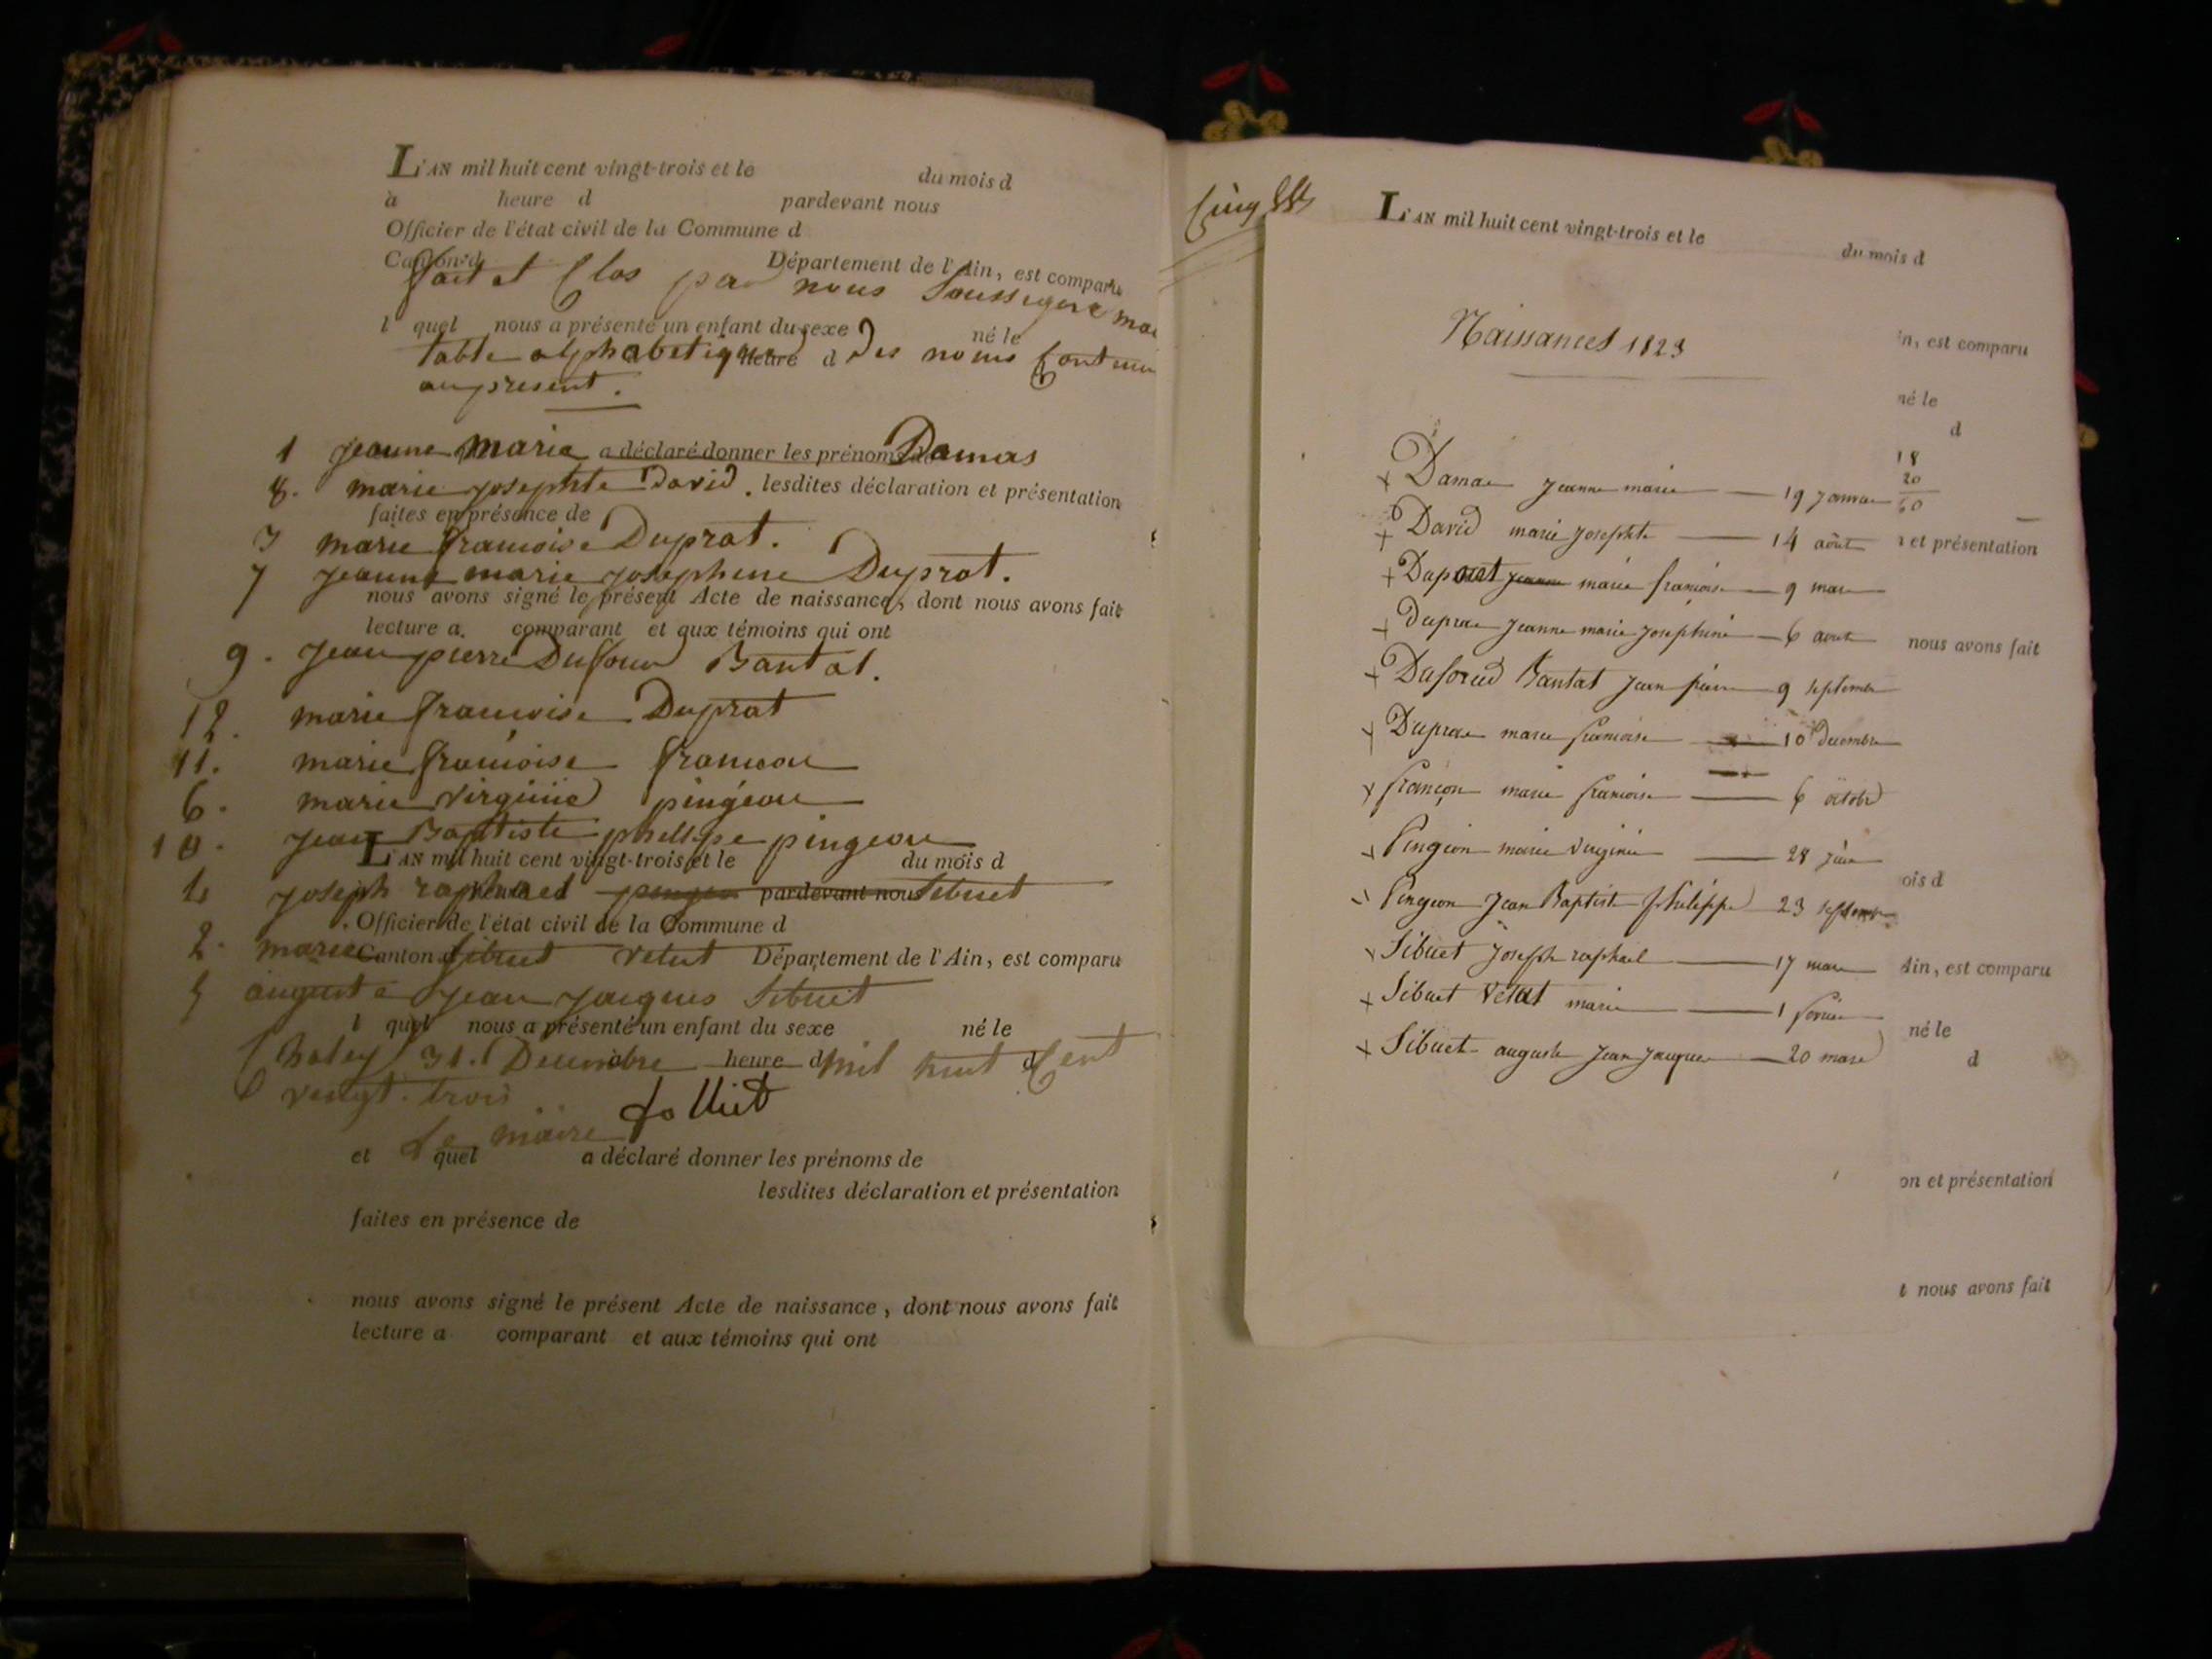 L'AN mil huit cent vingt-trois et le du mois d
à heure d pardevant nous
Officier de l'état civil de la Commune d
Canton d Département de l'Ain, est comparu
fait et Clos par nous Soussigné
l quel nous a présenté un enfant du sexe né le
heure d
table alphabetique des noms
au present.
1 jeanne marie Damas
a déclaré donner les prénoms de
8. marie josephte David.
lesdites déclaration et présentation
faites en présence de
3 marie francoise Duprat.
7 jeanne marie josephine Duprat.
nous avons signé le présent Acte de naissance, dont nous avons fait
lecture a comparant et aux témoins qui ont
9. jean pierre Dufour Bantat.
12. marie francoise Duprat
11. marie francoise francon
6. marie virginie pingeon
10. jean Baptiste philippe pingeon
L'AN mil huit cent vingt-trois et le du mois d
joseph raphael Sibuet
heure d pardevant nous
Officier de l'état civil de la Commune d
2. marie Sibuet vetut
Canton d Département de l'Ain, est comparu
5 auguste jean jacques Sibuet
l quel nous a présenté un enfant du sexe né le
heure d d
31. Decembre mil huit Cent
vingt-trois
Le maire
et quel a déclaré donner les prénoms de
lesdites déclaration et présentation
faites en présence de
nous avons signé le présent Acte de naissance, dont nous avons fait
lecture a comparant et aux témoins qui ont
Cinq
L'AN mil huit cent vingt-trois et le du mois d
Naissances 1823
in, est comparu
né le
d
18
20
60
+ Damas jeanne marie — 19 janvier
+ David marie josephte — 14 août
n et présentation
+ Duprat jeanne marie francoise — 9 mars
+ Duprat jeanne marie josephine — 6 aout
nous avons fait
+ Dufour Bantat jean pierre — 9 septembre
+ Duprat marie francoise — 10 decembre
+ françon marie francoise — 6 octobre
+ Pingeon marie virginie — 28 juin
ois d
+ Pingeon jean Baptiste philippe — 23 septembre
+ Sibuet joseph raphael — 17 mars
Ain, est comparu
+ Sibuet Vetut marie — 1 fevrier
né le
+ Sibuet auguste jean jacques — 20 mars
d
on et présentation
t nous avons fait